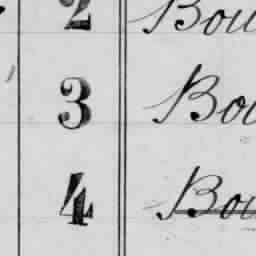 2 Bou
3 Bou
4 Bou